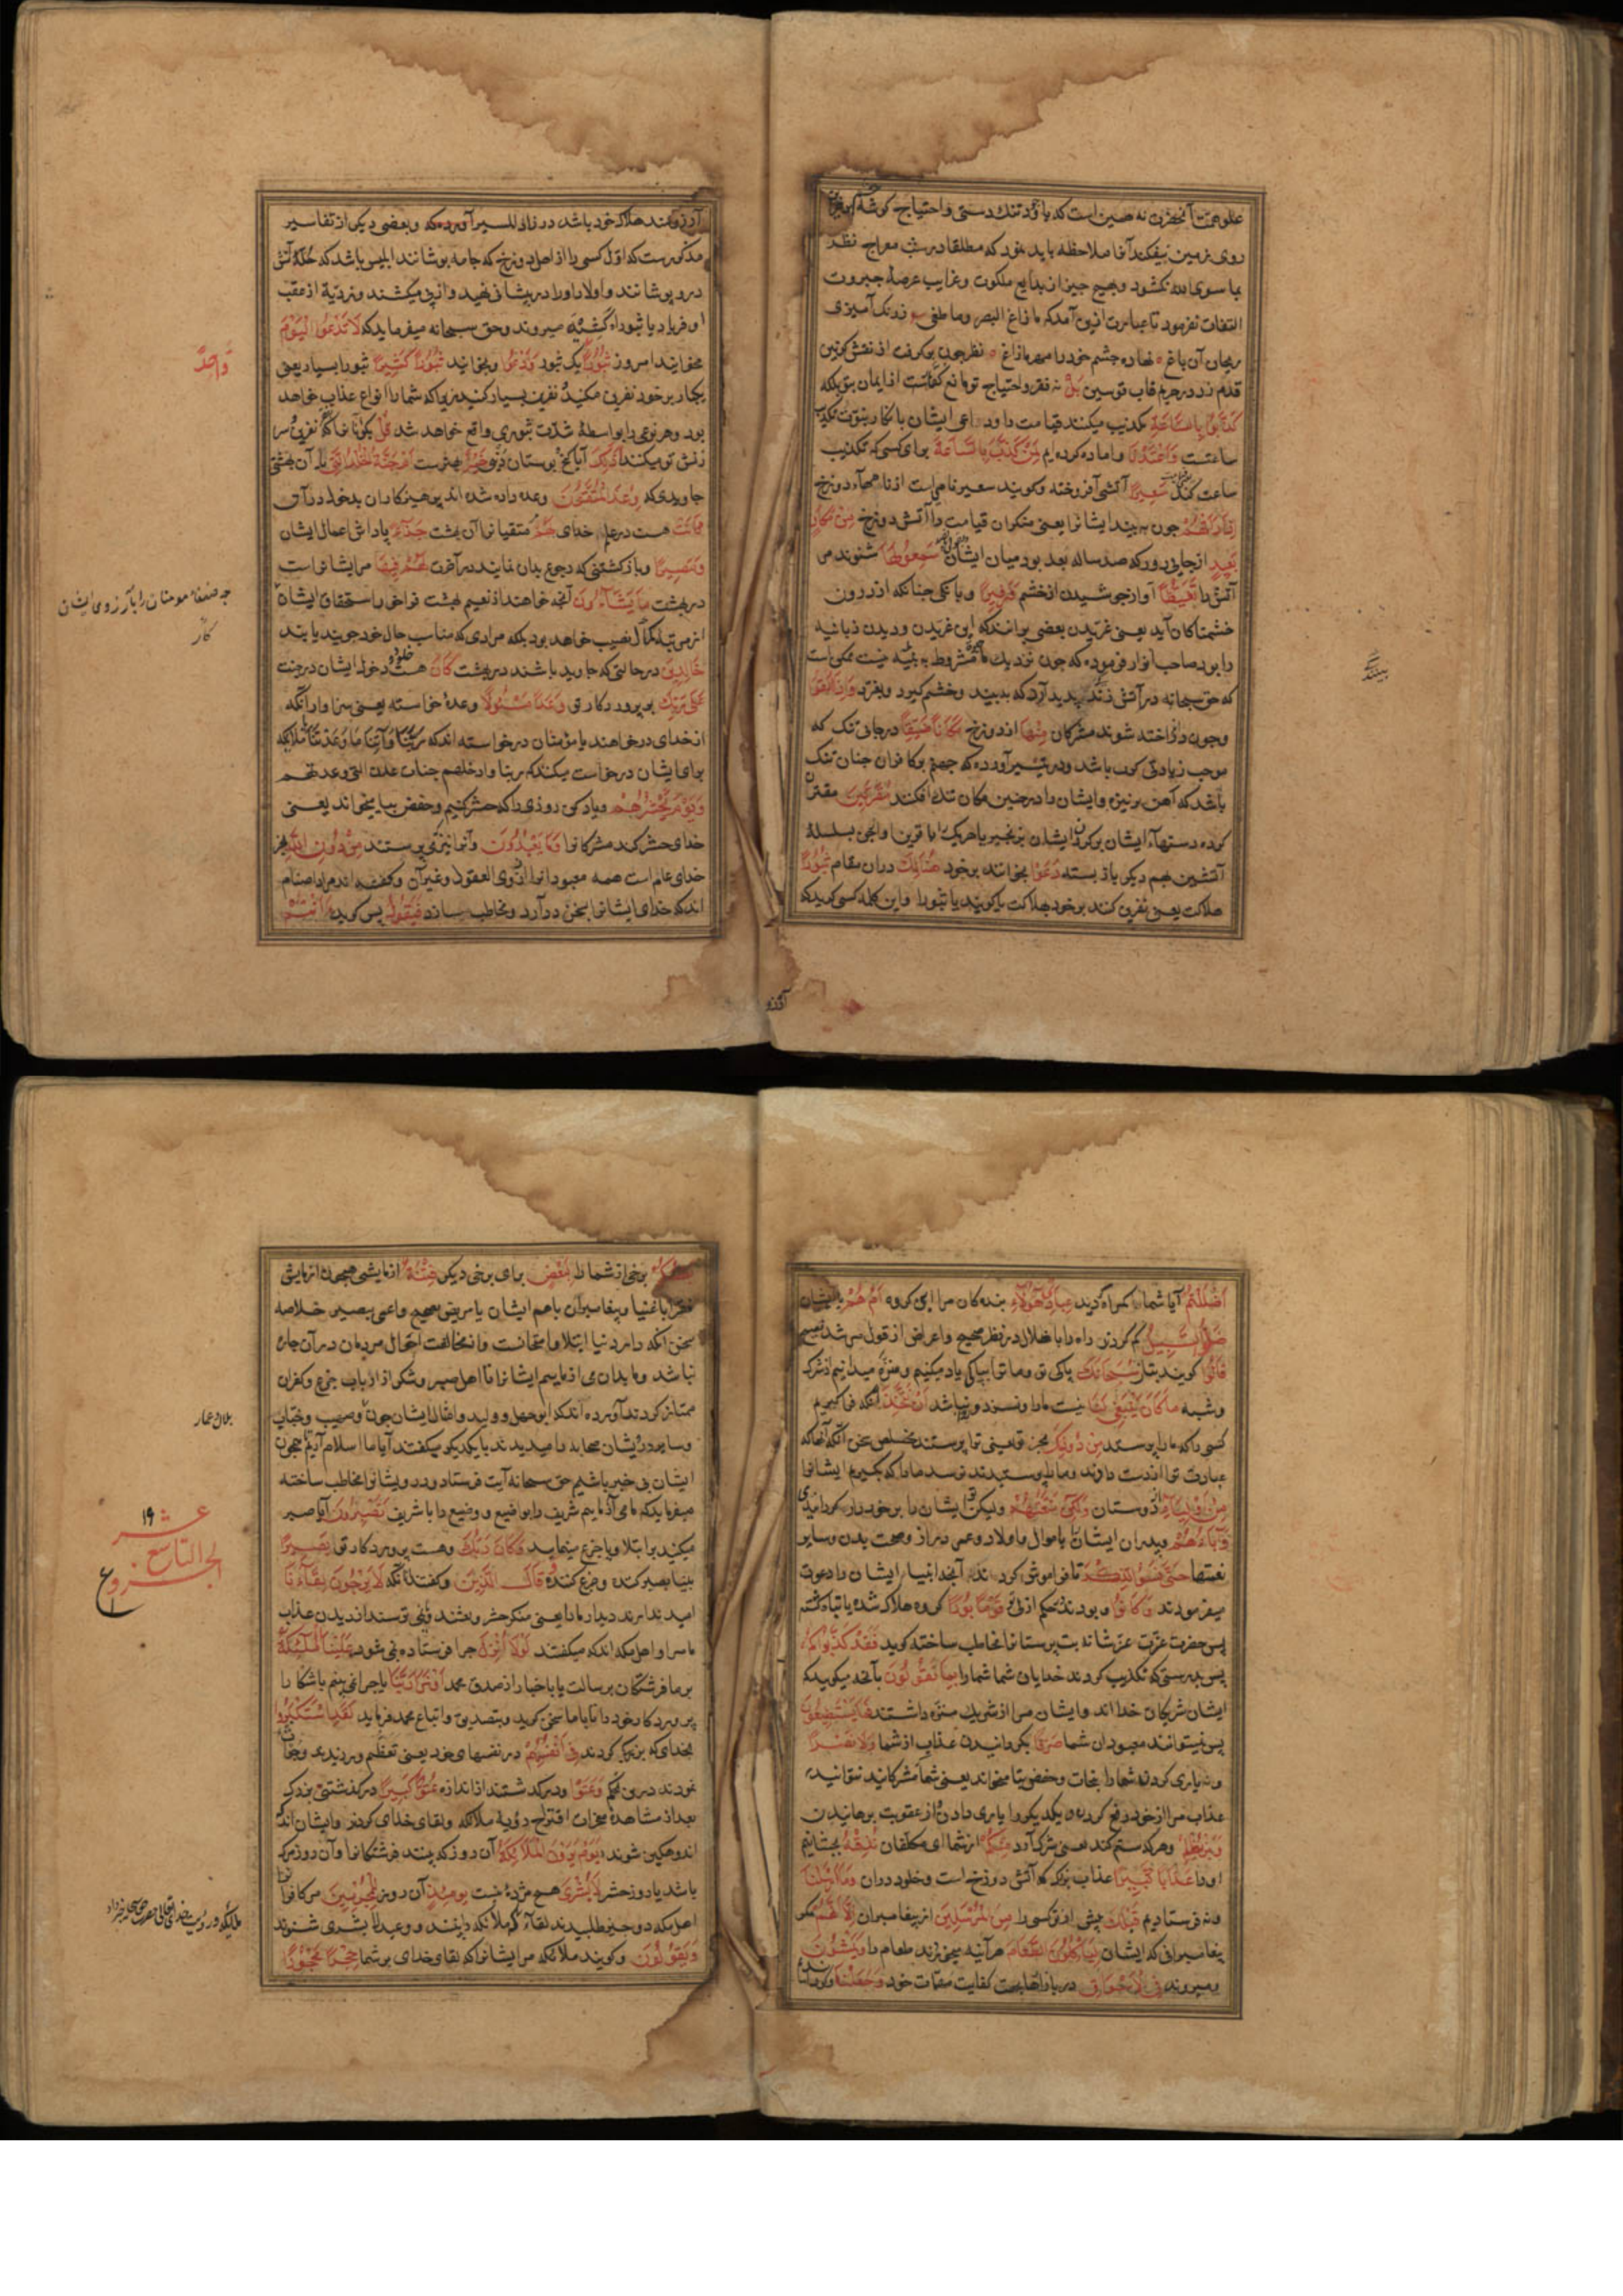 علو همت آنحضرت نه چنین است که با وجود تنک دستی و احتیاج کوشهٔ چشم
روی زمین بیفکند آفا ملاحظه باید نمود که مطلقا در شب معراج نظر
بما سوی الله نکشود و بهیچ چیز از بدایع ملکوت و غرایب عرصهٔ جبروت
التفات نفرمود تا عبارت ازین آمد که ما زاغ البصر و ما طغی ز رنک آمیزی
ریحان آن باغ نهاده چشم خود را مهر ما زاغ نظر چون بر کرفت از نقش کونین
قدم زد در حریم قاب قوسین بل نه فقر و احتیاج تو مانع کفاتست از ایمان بتو بلکه
کذبوا بالساعة تکذیب میکنند قیامت را و داعی ایشان بانکار نبوت تکذیب
ساعتست واعتدنا و اماده کرده ایم لمن کذب بالساعة برای کسی که تکذیب
ساعت کند سعیرا آتشی افروخته و کویند سعیر نامی است از نامهاء دوزخ
اذا رأتهم چون به بیند ایشانرا یعنی منکران قیامت را آتش دوزخ من مکان
بعید از جایی دور که صد ساله بعد بود میان ایشان سمعوا لها شنوند مر
آتش را تغیظا آواز جوشیدن از خشم وزفیرا و بانکی چنانکه از درون
خشمناکان آید یعنی غریدن بعضی برانند که این غریدن و دیدن زبانیه
را بود صاحب انوار فرموده که چون نزدیک ما مشروط به بنیه نیست ممکن است
که حق سبحانه در آتش زند پدید آرد که به بیند و خشم کیرد و بغرد واذا القوا
و چون در انداخته شوند مشرکان منها از دوزخ مکانا ضیقا در جای تنک که
موجب زیادتی کرب باشد و در تیسیر آورده که جهنم بر کافران چنان تنک
باشد که آهن بر نیزه و ایشان را در چنین مکان تنک افکند مقرنین مقترن
کرده دستهاء ایشان بر کردن ایشان بزنجیر یا هریک را با قرین او از جن بسلسلهٔ
آتشین بهم دیکر باز بسته دعوا بخوانند بر خود هنالک دران مقام ثبورا
هلاکت یعنی نفرین کنند بر خود بهلاکت یا کویند یا ثبورا و این کلمه کسی کوید که
آرزو
بیندیک
آرزومند هلاک خود باشد در زاد المسیر آورده که و بعضی دیکر از تفاسیر
مذکورست که اول کسی را از اهل دوزخ که جامه پوشانند ابلیس باشد که حلهٔ آتش
درو پوشانند و اولاد او را در پیشانی نهید و از پی میکشند و ذریة از عقب
او فریاد یا ثبوراه کشیده میروند و حق سبحانه میفرماید که لا تدعوا الیوم
مخوانید امروز ثبورا یک ثبور وادعوا و بخوانید ثبورا کثیرا ثبور بسیار یعنی
یکبار بر خود نفرین مکنید نفرین بسیار کنید زیرا که شما را انواع عذاب خواهد
بود و هر نوعی را بواسطهٔ شدت ثبوری واقع خواهد شد قل بکو
زنش تو میکنند اذلک آیا کنج و بوستان خیر بهترست ام جنة الخلد التی یا آن بهشتی
جاویدی که وعد المتقون وعده داده شده اند پرهیزکاران بدخول درآن
کانت هست در علم خدای لهم متقیانرا آن بهشت جزاء پاداش اعمال ایشان
ومصیرا و باز کشتنی که رجوع بدان نمایند در آخرت لهم فیها مر ایشانراست
در بهشت ما یشاؤن آنچه خواهند از نعیم بهشت فراخور استحقاق ایشان
خالدین در حالتی که جاوید باشند در بهشت کان هست دخول ایشان در جنت
علی ربک بر پروردکار تو وعدا مسئولا وعدهٔ خواسته یعنی سزاوار آنکه
از خدای در خواهند یا مؤمنان درخواسته اند که ربنا وآتنا ما وعدتنا یا ملائکه
برای ایشان درخواست میکنند که ربنا وادخلهم جنات عدن التی وعدتهم
ویوم یحشرهم و یاد کن روزی را که حشر کنیم و حفص بیا میخواند یعنی
خدای حشر کند مشرکانرا وما یعبدون و آنرا نیز که می پرستند من دون الله بجز
خدای عام است همه معبودانرا از ذوی العقول و غیر آن و کفته اند مراد اصنام
اند که خدای ایشانرا بسخن درآرد و مخاطب سازد فیقول پس کوید ءانتم
واحدا
چه ضعفاء مومنان را بآرزوی ایشان
کار
اضللتم آیا شما کمراه کردید عبادی هؤلاء بندکان مرا این کروه ام هم یا ایشان
ضلوا السبیل کم کردند راه را باخلال در نظر صحیح و اعراض از قول مرشد نصیح
قالوا کویند بتان سبحانک پاکی تو و ما ترا بپاکی یاد میکنیم و منزه میدانیم از شرک
و شبه ما کان ینبغی لنا نیست ما را و نسزد و نباشد ان نتخذ آنکه فرا کیریم
کسی را که ما را پرستد من دونک بجز تو یعنی ترا پرستند مخلص سخن آنکه آنها که
عبادت ترا از دست دادند و ما را پرستیدند نرسد ما را که بکیریم ایشانرا
من اولیاء از دوستان ولکن متعتهم ولیکن تو ایشان را برخوردار کردانیدی
وآباءهم و پدران ایشان باموال و اولاد و عمر دراز و صحت بدن و سایر
نعمتها حتی نسوا الذکر تا فراموش کردند آنچه انبیا ایشان را دعوت
میفرمودند وکانوا و بودند بحکم ازلی تو قوما بورا کروه هلاک شده یا تباه کشته
پس حضرت عزت عز شانه بت پرستانرا مخاطب ساخته کوید فقد کذبوکم
پس بدرستی که تکذیب کردند خدایان شما شما را بما تقولون بآنچه میکویید که
ایشان شریکان خدا اند و ایشان مرا از شریک منزه داشتند فما یستطیعون
پس نمیتوانند معبودان شما صرفا بکردانیدن عذاب از شما ولا نصرا
و نه یاری کردن شما را بنجات و حفص بتا میخواند یعنی شما مشرکانید نتوانید
عذاب مرا از خود دفع کردن و یکدیکر را یاری دادن از عقوبت برهانیدن
ومن یظلم و هرکه ستم کند یعنی شرک آرد منکم از شما ای مکلفان نذقه بچشانیم
او را عذابا کبیرا عذاب بزرک که آتش دوزخ است و خلود دران وما ارسلنا
و نه فرستادیم قبلک پیش از تو کسی را من المرسلین از پیغامبران الا انهم مکر
پیغامبرانی که ایشان لیأکلون الطعام هر آینه میخوردند طعام را ویمشون
و میروند فی الاسواق در بازارها بجهت کفایت مهمات خود وجعلنا و کردانیدیم
بعضکم برخی از شما را لبعض برای برخی دیکر فتنة ازمایشی همچون ازمایش
فقرا باغنیا و پیغامبران باهم ایشان یا مریض بصحیح و اعمی ببصیر خلاصه
سخن آنکه دار دنیا ابتلا و امتحانست و از مخالفت احوال مردمان در آن چاره
نباشد و بدان می ازماییم ایشانرا تا اهل صبر و شکر از ارباب جزع و کفران
ممتاز کردند آورده اند که ابوجهل و ولید و امثال ایشان چون بلال و صهیب و خباب
و سایر درویشان صحابه را میدیدند با یکدیکر میکفتند آیا ما اسلام آریم تا همچون
ایشان بی خبر باشیم حق سبحانه آیت فرستاد و درویشانرا مخاطب ساخته
میفرماید که ما می آزماییم شریف را بوضیع و وضیع را بشریف أتصبرون آیا صبر
میکنید بر ابتلا و یا جزع مینمایید وکان ربک و هست پروردکار تو بصیرا
بینا بصبر کننده و جزع کننده وقال الذین و کفتند آنانکه لا یرجون لقاءنا
امید ندارند دیدار ما را یعنی منکر حشر و بعثند و نمی ترسند از دیدن عذاب
ما مراد اهل مکه اند که میکفتند لولا انزل چرا فرستاده نمی شود علینا الملئکة
بر ما فرشتکان برسالت یا باخبار از صدق محمد او نری ربنا یا چرا نمی بینیم باشکارا
پروردکار خود را تا با ما سخن کوید و بتصدیق و اتباع محمد فرماید لقد استکبروا
بخدای که بزرکی کردند فی انفسهم در نفسهای خود یعنی تعظم ورزیدند و
نمودند درین حکم وعتوا و درکذشتند از اندازه عتوا کبیرا درکذشتنی بزرک
بعد از مشاهدهٔ معجزات اقتراح رؤیة ملائکه و لقای خدای کردند و ایشان اندک
اندوهکین شوند یوم یرون الملائکة آن روز که بینند فرشتکانرا و آن روز مرک
باشد یا روز حشر لا بشری هیچ مژده نیست یومئذ آن روز للمجرمین مر کافرانرا
اهل مکه دو چیز طلبیدند لقاء ملائکه و
ویقولون و کویند ملائکه مر ایشانرا که لقای خدای بر شما حجرا محجورا
بلال عمار
عشر ١٩
الجزء التاسع
ع